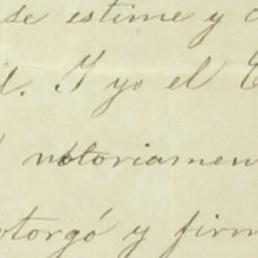 se estime y
Y yo el
notoriamen
otorgó y firm